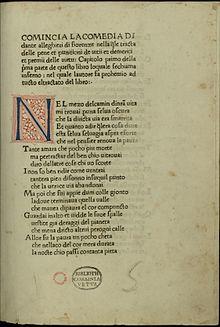 COMINCIA LACOMEDIA DI
dante alleghieri di fiorenze nella q̃le tracta
delle pene et punitioni de uitii et demeriti
et premii delle uirtu: Capitolo primo della
p̃ma parte de questo libro loquale sechiama
inferno: nel quale lautore fa prohemio ad
tucto eltractato del libro:·
NEL mezo delcamin dinr̃a uita
mi trouai per una selua oscura
che la diricta uia era smarrita
Et quanto adir q̃lera cosa dura
esta selua seluagia aspra eforte
che nel pensier renoua la paura
Tante amara che pocho piu morte
ma pertractar del ben chio uitrouai
diro dellaltre cose chi uo scorte
I non so ben ridir come uentrai
tantera pien di sonno insuquil punto
che la uerace uia abandonai
Ma poi che fui appie dum colle gionto
ladoue terminaua quella ualle
che mauea dipaura el cor compuncto
Guardai inalto et uidde le suoe spalle
uestite gia deraggi del pianeta
che mena dricto altrui perogni calle
Allor fu la paura un pocho cheta
che nellaco del cor mera durata
la nocte chio passai contanta pieta
BIBLIOTH